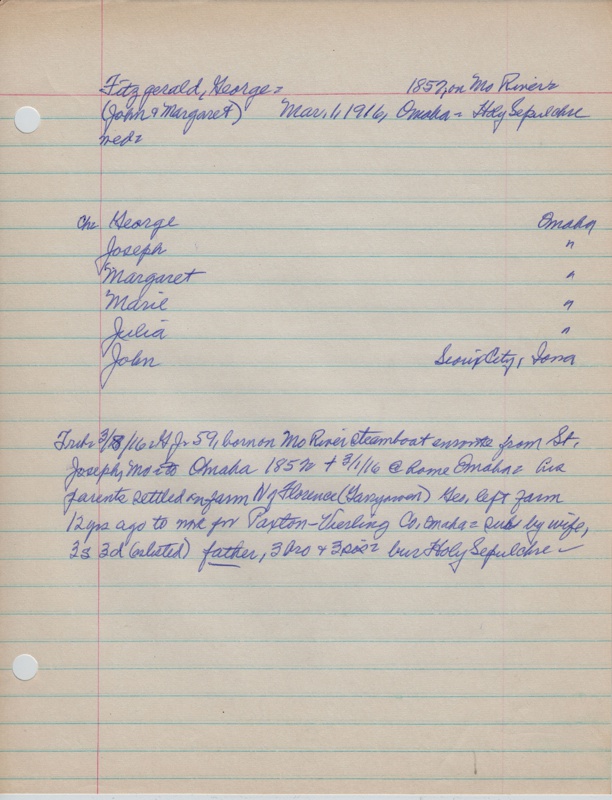 Fitzgerald, George = 1857, on Mo River =
(John & Margaret) Mar. 1, 1916, Omaha = Holy Sepulchre
med =
Ch: George Omaha
Joseph "
Margaret "
Marie "
Julia "
John Sioux City, Iowa
Trib 3/18/16 59, born on Mo River steamboat enroute from St.
Joseph, Mo to Omaha 1857 + 3/1/16 @ home Omaha = his
parents settled on farm N of Florence ( ) Geo. left farm
12 yrs ago to wrk for Paxton-Vierling Co, Omaha = surv by wife,
3s 3d (as listed) father, 3 bro & 3 sis = bur Holy Sepulchre